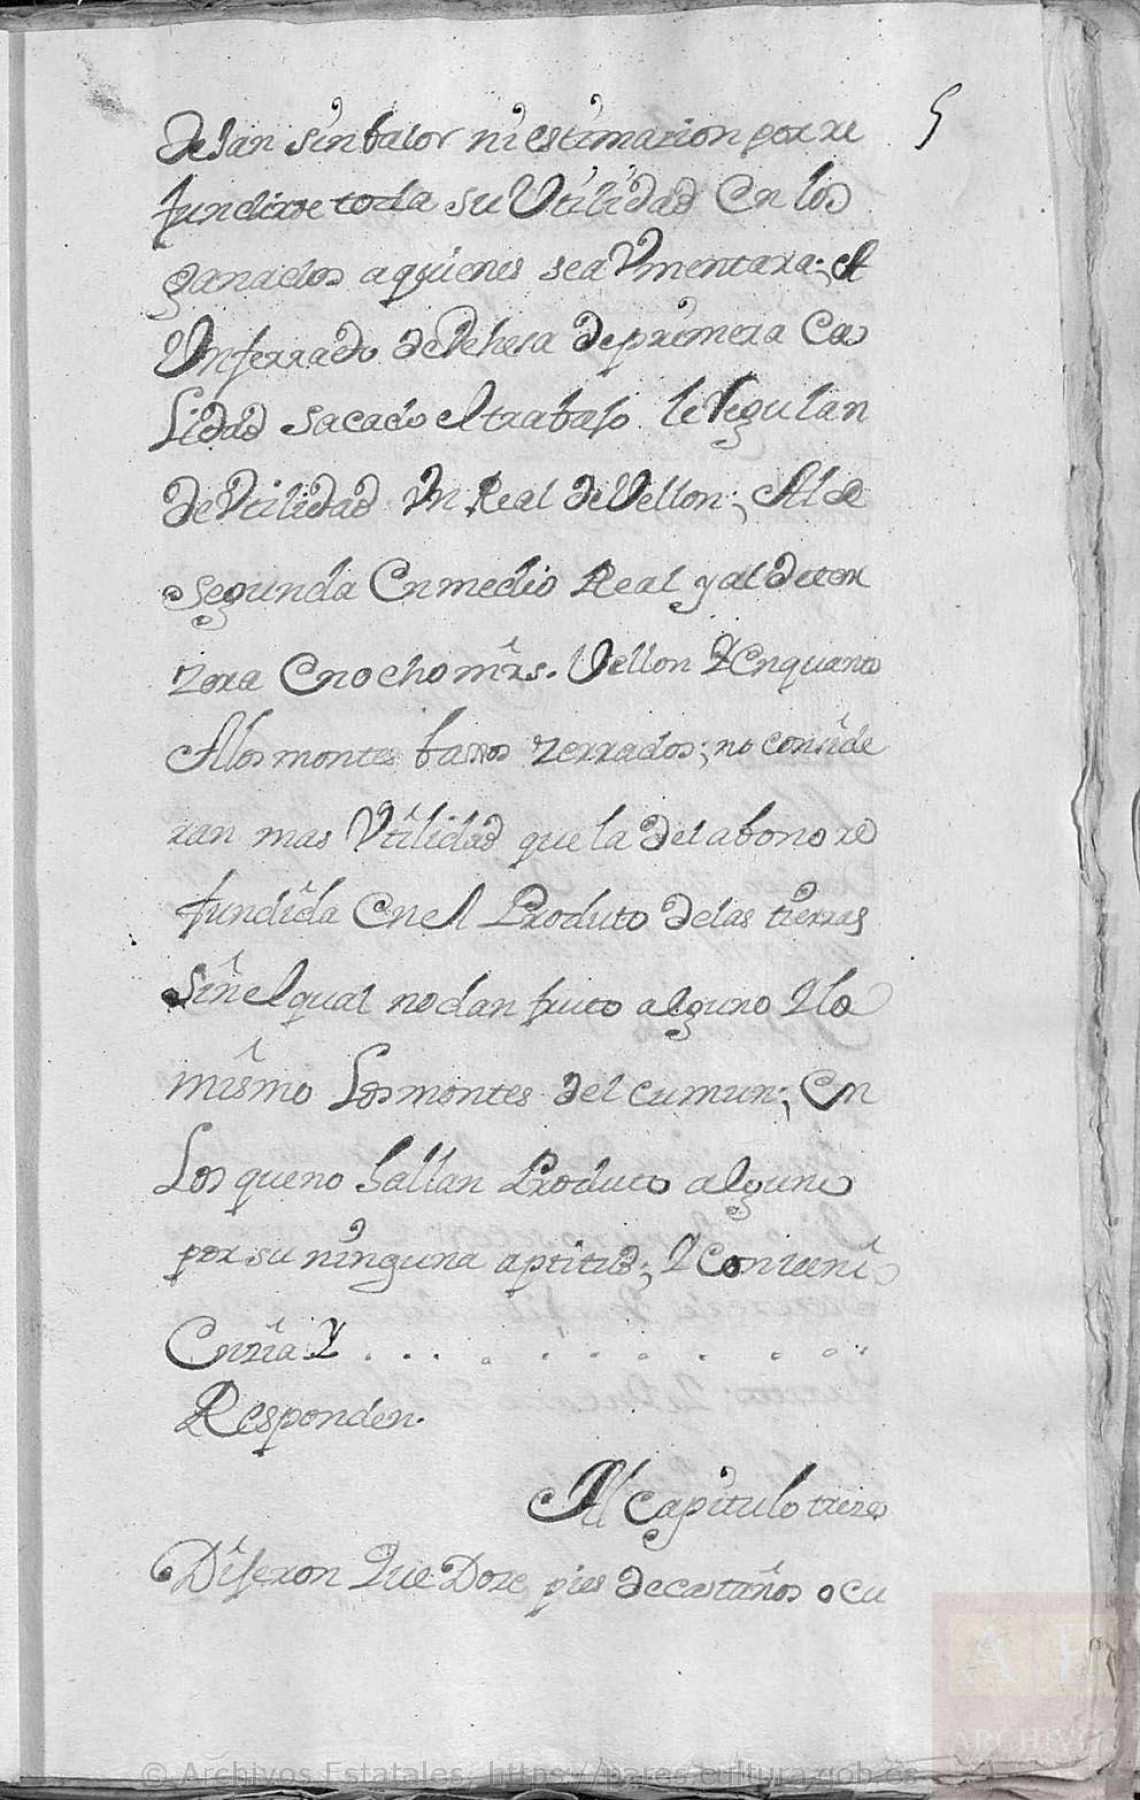 5
deJan sin balor ni estimazion por re
fundirse toda su Utilidad En los
ganados a quienes sea Umentara; A
Un ferrado de Dehesa de primera Ca
Lidad sacado El trabaJo le Regulan
de Utilidad Un Real de Vellon; Al de
segunda En medio Real y al de ter
zera En ocho mrs. Vellon Y En quanto
A los montes baxos zerrados; no conside
ran mas Utilidad que la del abono re
fundida En el Produto de las tierras
Sin el qual no dan fruto alguno Y lo
mismo Los montes del cumun; En
Los que no hallan Produto alguno
por su ninguna aptitud; Y Conveni
Enzia Y . . . . . . . . . . .
Responden.
Al Capitulo treze
DiJeron Que Doze pies de castaños o cu
© Archivos Estatales, https://pares.cultura.gob.es
A E
ARCHIVOS